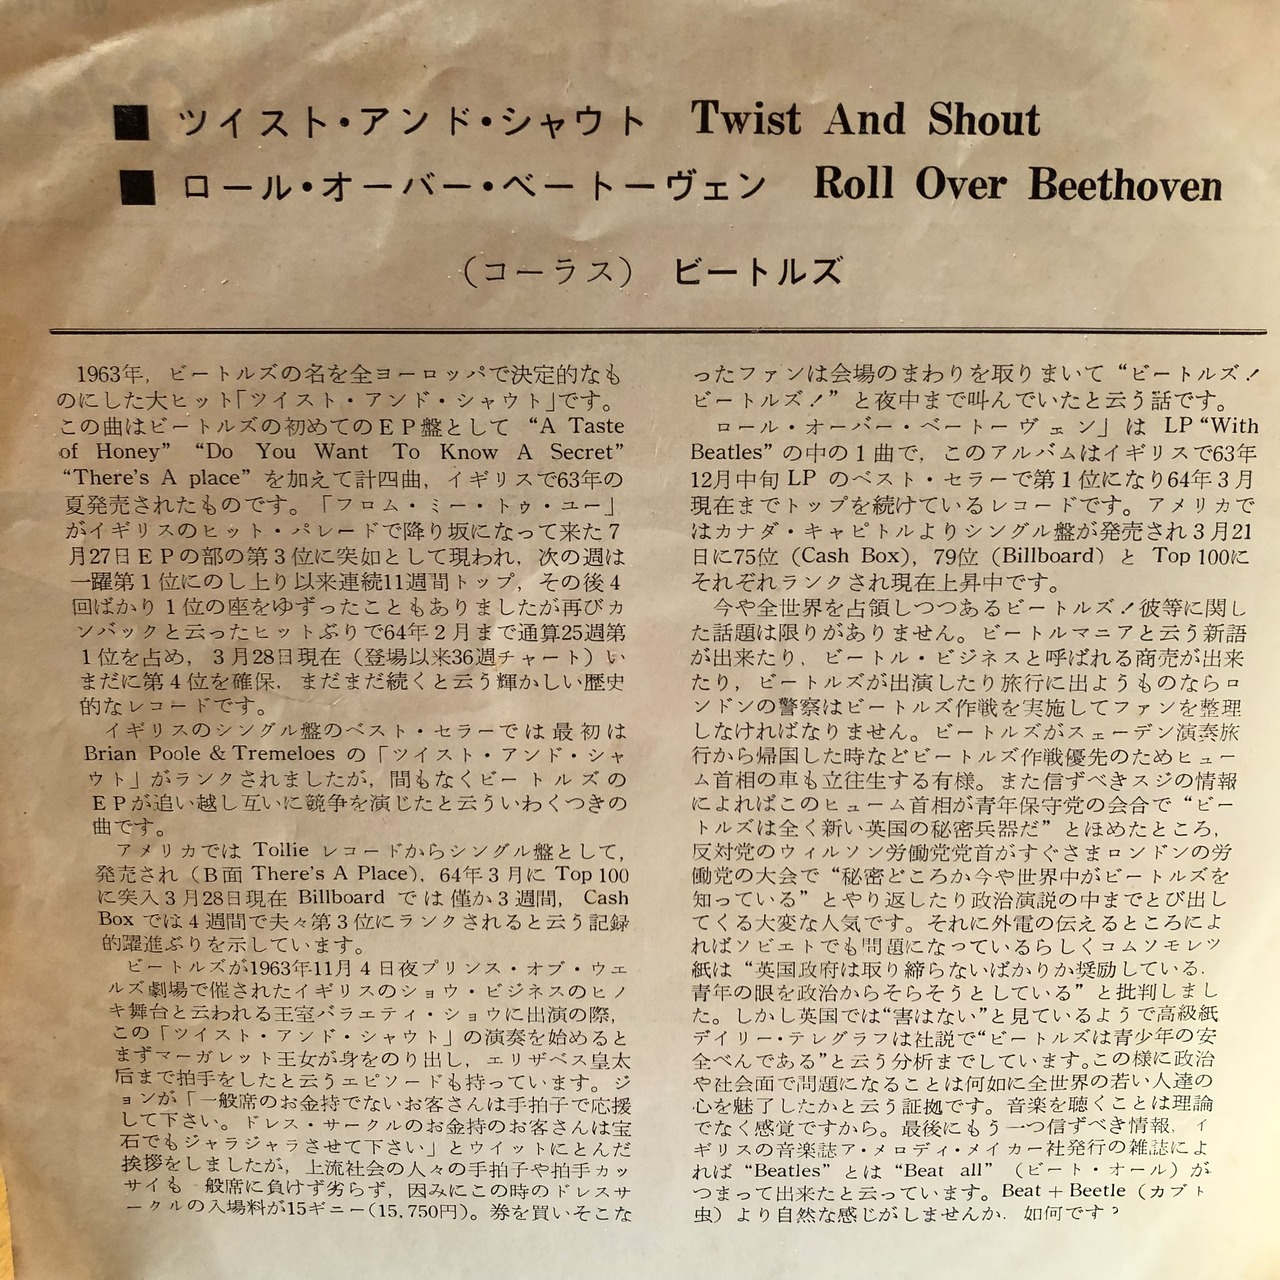 ■ ツイスト・アンド・シャウト Twist And Shout
■ ロール・オーバー・ベートーヴェン Roll Over Beethoven
（コーラス） ビートルズ
1963年，ビートルズの名を全ヨーロッパで決定的なも
のにした大ヒット「ツイスト・アンド・シャウト」です。
この曲はビートルズの初めてのＥＰ盤として “A Taste
of Honey” “Do You Want To Know A Secret”
“There's A place” を加えて計四曲，イギリスで63年の
夏発売されたものです。「フロム・ミー・トゥ・ユー」
がイギリスのヒット・パレードで降り坂になって来た７
月27日ＥＰの部の第３位に突如として現われ，次の週は
一躍第１位にのし上り以来連続11週間トップ，その後４
回ばかり１位の座をゆずったこともありましたが再びカ
ンバックと云ったヒットぶりで64年２月まで通算25週第
１位を占め，３月28日現在（登場以来36週チャート）い
まだに第４位を確保，まだまだ続くと云う輝かしい歴史
的なレコードです。
イギリスのシングル盤のベスト・セラーでは最初は
Brian Poole & Tremeloes の「ツイスト・アンド・シャ
ウト」がランクされましたが，間もなくビートルズの
ＥＰが追い越し互いに競争を演じたと云ういわくつきの
曲です。
アメリカでは Tollie レコードからシングル盤として，
発売され（Ｂ面 There's A Place)，64年３月に Top 100
に突入３月28日現在 Billboard では僅か３週間， Cash
Box では４週間で夫々第３位にランクされると云う記録
的躍進ぶりを示しています。
ビートルズが1963年11月４日夜プリンス・オブ・ウエ
ルズ劇場で催されたイギリスのショウ・ビジネスのヒノ
キ舞台と云われる王室バラエティ・ショウに出演の際，
この「ツイスト・アンド・シャウト」の演奏を始めると
まずマーガレット王女が身をのり出し，エリザベス皇太
后まで拍手をしたと云うエピソードも持っています。ジ
ョンが「一般席のお金持でないお客さんは手拍子で応援
して下さい。ドレス・サークルのお金持のお客さんは宝
石でもジャラジャラさせて下さい」とウイットにとんだ
挨拶をしましたが，上流社会の人々の手拍子や拍手カッ
サイも一般席に負けず劣らず，因みにこの時のドレスサ
ークルの入場料が15ギニー(15,750円)。券を買いそこな
ったファンは会場のまわりを取りまいて “ビートルズ！
ビートルズ！” と夜中まで叫んでいたと云う話です。
ロール・オーバー・ベートーヴェン」は LP “With
Beatles” の中の１曲で，このアルバムはイギリスで63年
12月中旬 LP のベスト・セラーで第１位になり64年３月
現在までトップを続けているレコードです。アメリカで
はカナダ・キャピトルよりシングル盤が発売され３月21
日に75位 (Cash Box)，79位 (Billboard) と Top 100に
それぞれランクされ現在上昇中です。
今や全世界を占領しつつあるビートルズ！彼等に関し
た話題は限りがありません。ビートルマニアと云う新語
が出来たり，ビートル・ビジネスと呼ばれる商売が出来
たり，ビートルズが出演したり旅行に出ようものならロ
ンドンの警察はビートルズ作戦を実施してファンを整理
しなければなりません。ビートルズがスェーデン演奏旅
行から帰国した時などビートルズ作戦優先のためヒュー
ム首相の車も立往生する有様。また信ずべきスジの情報
によればこのヒューム首相が青年保守党の会合で “ビー
トルズは全く新い英国の秘密兵器だ” とほめたところ，
反対党のウィルソン労働党党首がすぐさまロンドンの労
働党の大会で “秘密どころか今や世界中がビートルズを
知っている” とやり返したり政治演説の中までとび出し
てくる大変な人気です。それに外電の伝えるところによ
ればソビエトでも問題になっているらしくコムソモレツ
紙は “英国政府は取り締らないばかりか奨励している．
青年の眼を政治からそらそうとしている” と批判しまし
た。しかし英国では“害はない”と見ているようで高級紙
デイリー・テレグラフは社説で“ビートルズは青少年の安
全べんである”と云う分析までしています。この様に政治
や社会面で問題になることは何如に全世界の若い人達の
心を魅了したかと云う証拠です。音楽を聴くことは理論
でなく感覚ですから。最後にもう一つ信ずべき情報，イ
ギリスの音楽誌ア・メロディ・メイカー社発行の雑誌によ
れば “Beatles” とは “Beat all” （ビート・オール）が
つまって出来たと云っています。Beat + Beetle（カブト
虫）より自然な感じがしませんか．如何です？